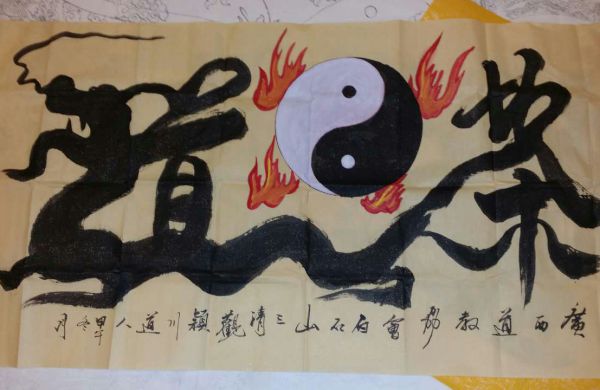 荣道
廣西道教協會白石山三清觀穎川道人甲午冬月